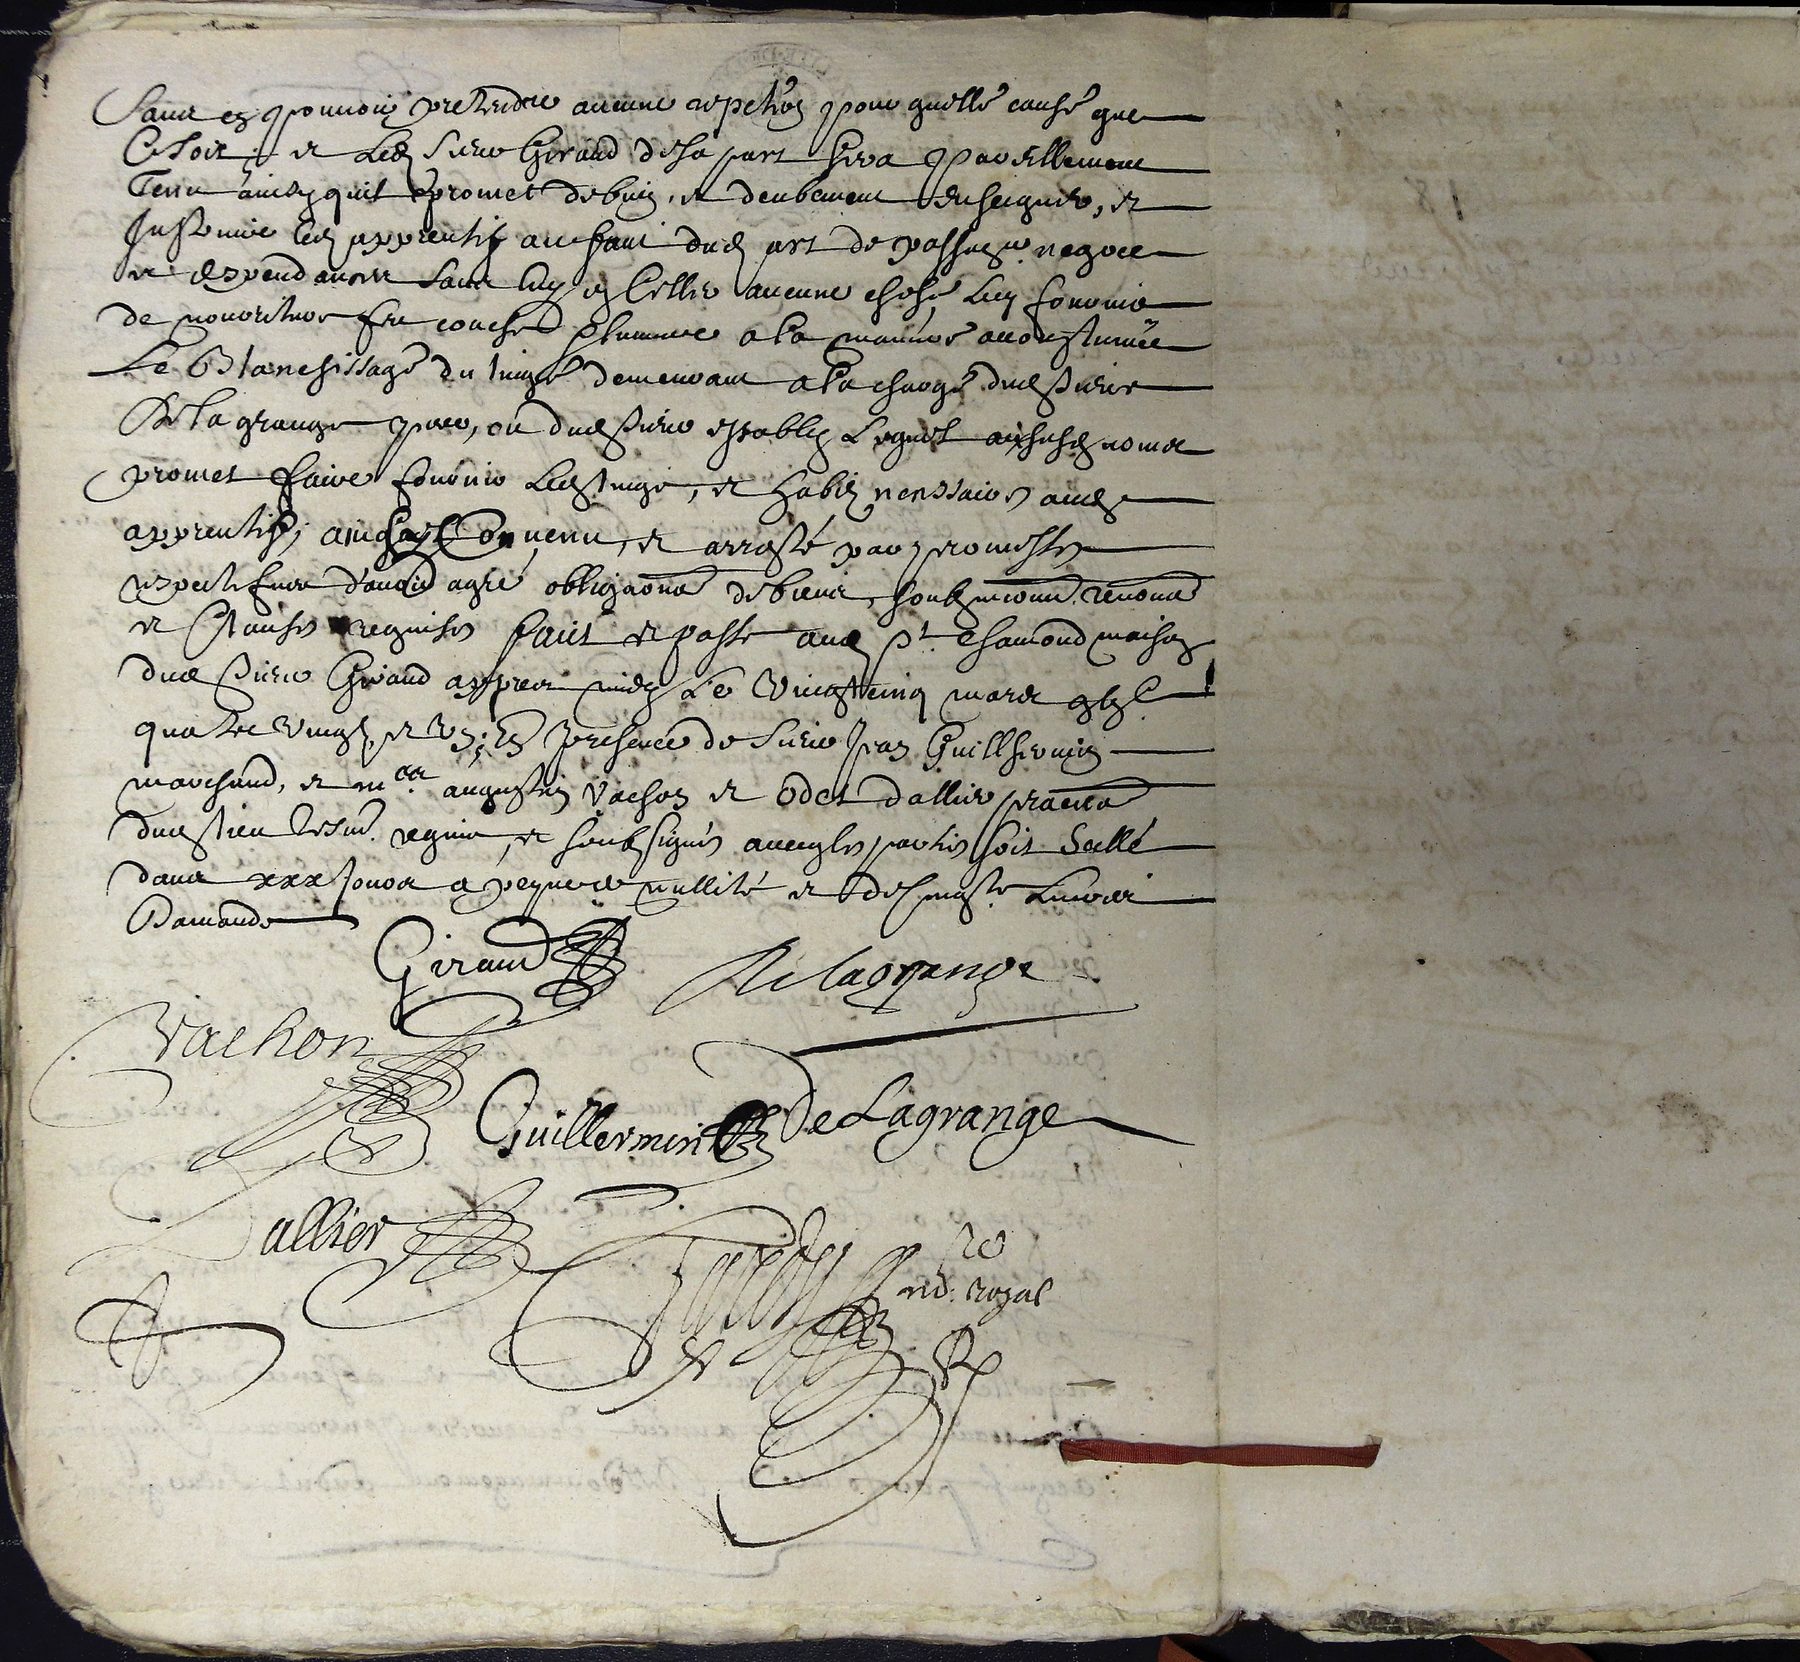 Sans en pouvoir pretendre aucune repeton pour quelle cause que
Ce soit; et Led Sieur Giraud de sa part sera pareillement
Tenu ainsy quil promet de bien, et deubement enseigner, et
Instruire led apprentif au fait dud art de passem.er negoce
et dependances sans luy en celler aucune chose luy fournir
de nourriture feu couche et lumiere a la maniere accoustumée
Le Blanchissage du linge demeurant a la charge dud sieur
De la grange pere, ou dud sieur estably Lequel aud nom
promet faire fournir led linge, et habis necessaires aud
apprentif, ainsy Convenu, et arresté par promesses
respectifves d'avoir agré obligaons de biens, soubmions renons
et Clauses requises fait et passé aud St. Chamond maison
dud Sieur Giraud apprès midy Le Vingt cinq mars
quatre vingt et un; En presence de Sieur Jean Guilhermin
marchand, et mes augustin Vachon et Odet dallier pratns
dud lieu tesms requis, et soubsignés avec les parties soit Sellé
dans xxx jours a peyne de nullité et de
Damande
Giraud
De lagrange
Vachon
Guillermin
De Lagrange
Dallier
nore royal